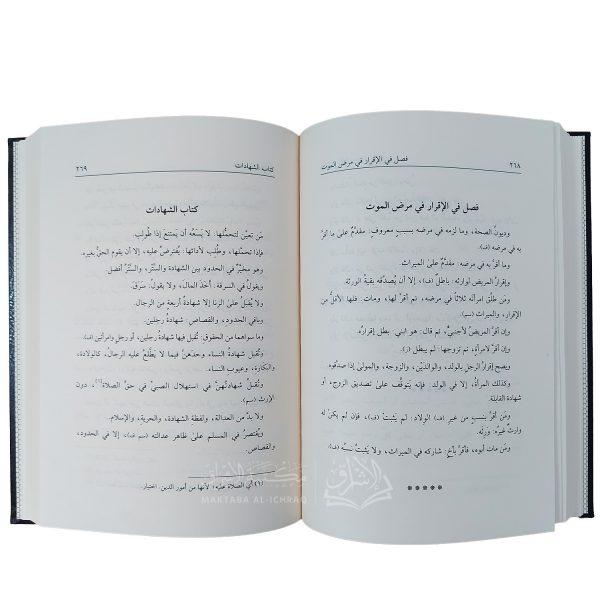 ٢٦٨
فصل في الإقرار في مرض الموت
فصل في الإقرار في مرض الموت
وديونُ الصحة، وما لزمه في مرضه بسببٍ معروف: مقدَّمٌ على ما أقرَّ
به في مرضه (ف).
وما أقرَّ به في مرضه: مقدَّمٌ على الميراث.
وإقرارُ المريض لوارثه: باطلٌ (ف)، إلا أن يُصدِّقه بقيةُ الورثة.
ومَن طلَّق امرأتَه ثلاثاً في مرضه، ثم أقرَّ لها، ومات: فلها الأقلُّ من
الإقرار، والميراث (سم).
وإن أقرَّ المريضُ لأجنبيٍّ، ثم قال: هو ابني: بطل إقرارُه.
وإن أقرَّ لامرأةٍ، ثم تزوجها: لم يبطل (ز).
ويصح إقرارُ الرجل بالولد، والوالدَيْن، والزوجة، والمولى إذا صدَّقوه
وكذلك المرأة، إلا في الولد: فإنه يَتوقَّف على تصديق الزوج، أو
شهادة القابلة.
ومَن أقرَّ بنسبٍ من غير (ف) الوِلاد: لم يثبت (ف)، فإن لم يكن له
وارثٌ غيرُه: وَرِثَه.
ومَن مات أبوه، فأقرَّ بأخٍ: شاركه في الميراث، ولا يَثبتُ نسبُه (ف).
*****
كتاب الشهادات
٢٦٩
كتاب الشهادات
مَن تعيَّن لتحمُّلها: لا يَسَعُه أن يمتنع إذا طُولِب.
فإذا تحمَّلها، وطُلِب لأدائها: يُفترَضُ عليه، إلا أن يقوم الحقُّ بغيره.
وهو مخيَّرٌ في الحدود بين الشهادة والسَّتْر، والسَّتْرُ أفضل.
ويقولُ في السرقة: أخذ المال، ولا يقولُ: سَرَقَ.
ولا يُقبلُ على الزنا إلا شهادةُ أربعةٍ من الرجال.
وباقي الحدود، والقصاص: شهادةُ رجلين.
وما سواهما من الحقوق: تُقبل فيها شهادةُ رجلين، أو رجلٍ وامرأتين (ف).
وتُقبلُ شهادةُ النساء وحدَهنَّ فيما لا يَطَّلعُ عليه الرجالُ، كالولادة،
والبكارة، وعيوب النساء.
وتُقبلُ شهادتُهنَّ في استهلال الصبيِّ في حقِّ الصلاة(١)، دون
الإرث (سم).
ولا بدَّ من العدالة، ولفظةِ الشهادة، والحرية، والإسلام.
ويُقتصَرُ في المسلم على ظاهر عدالته (سم ف)، إلا في الحدود،
والقصاص.
(١) أي الصلاة عليه؛ لأنها من أمور الدين. اختيار.
مكتبة الإشراق
MAKTABA AL-ICHRAQ
الإشراق